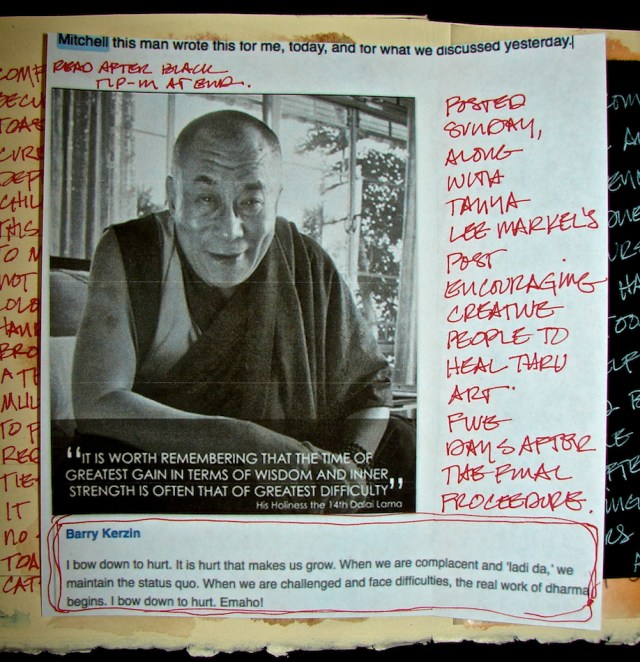 Mitchell this man wrote this for me, today, and for what we discussed yesterday.
READ AFTER BLACK
TIP-IN AT END.
POSTED
SUNDAY,
ALONG
WITH
TANYA
LEE MARKEL'S
POST
ENCOURAGING
CREATIVE
PEOPLE TO
HEAL THRU
ART.
FIVE
DAYS AFTER
THE FINAL
PROCEEDURE.
“IT IS WORTH REMEMBERING THAT THE TIME OF
GREATEST GAIN IN TERMS OF WISDOM AND INNER
STRENGTH IS OFTEN THAT OF GREATEST DIFFICULTY”
His Holiness the 14th Dalai Lama
Barry Kerzin
I bow down to hurt. It is hurt that makes us grow. When we are complacent and 'ladi da,' we
maintain the status quo. When we are challenged and face difficulties, the real work of dharma
begins. I bow down to hurt. Emaho!